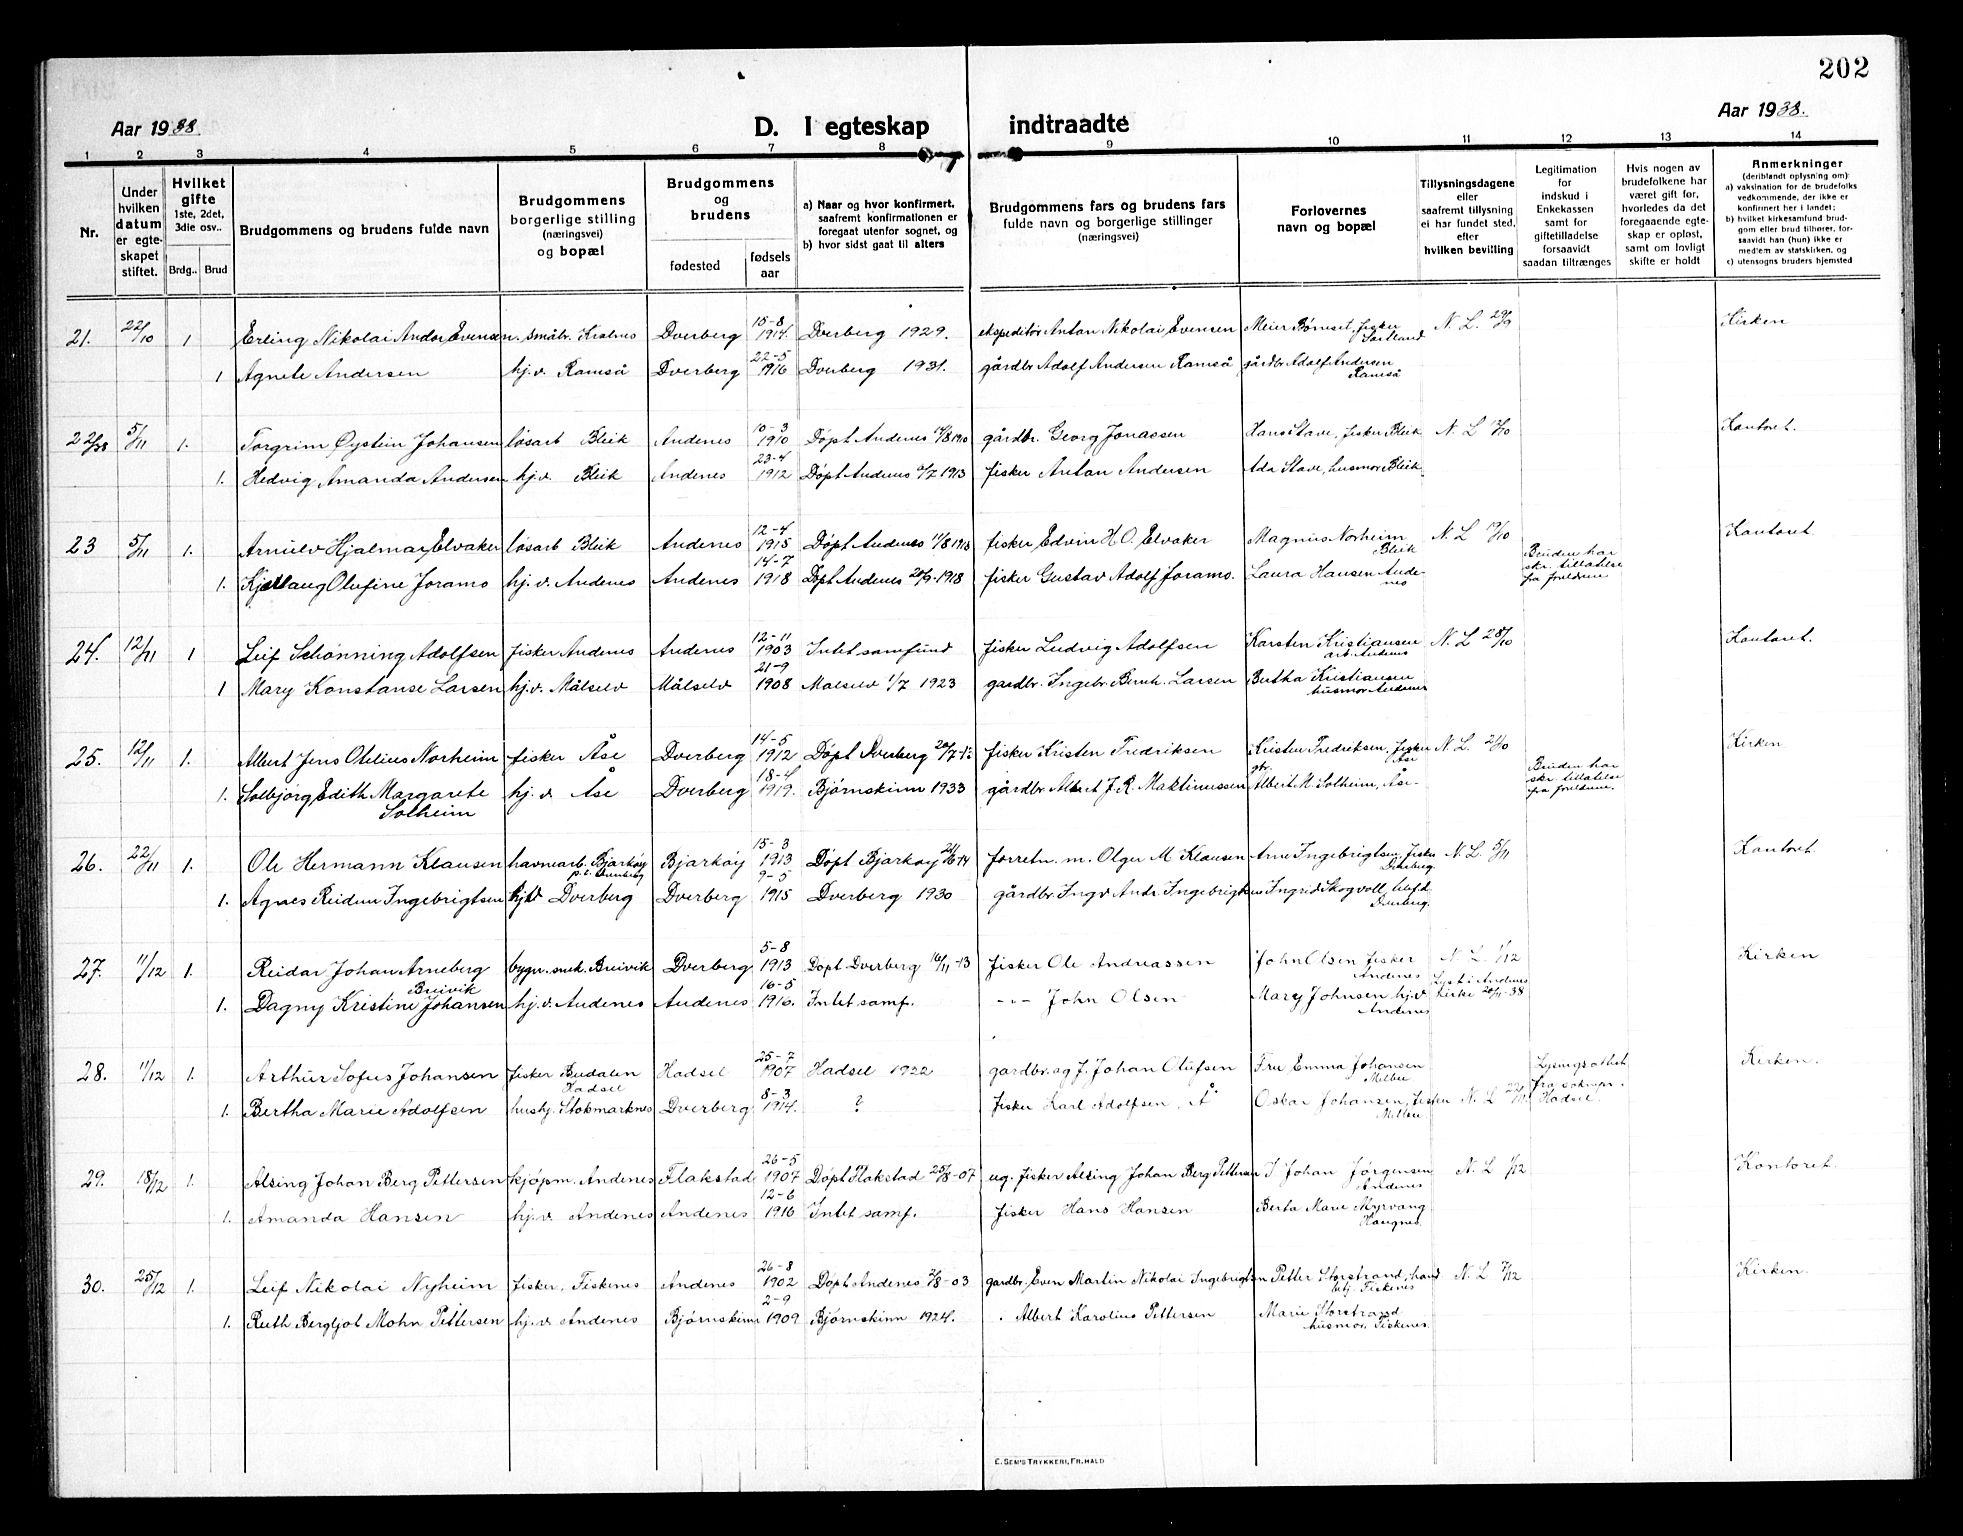 202
Aar 1938.
D. I egteskap indtraadte
Aar 1938.
1 2 3 4 5 6 7 8 9 10 11 12 13 14
Nr.
Under hvilken datum er egteskapet stiftet.
Hvilket gifte 1ste, 2det, 3die osv..
Brdg.. Brud
Brudgommens og brudens fulde navn
Brudgommens borgerlige stilling (næringsvei) og bopæl
Brudgommens og brudens
fødested
fødsels aar
a) Naar og hvor konfirmert, saafremt konfirmationen er foregaat utenfor sognet, og
b) hvor sidst gaat til alters
Brudgommens fars og brudens fars fulde navn og borgerlige stillinger (næringsvei)
Forlovernes navn og bopæl
Tillysningsdagene eller saafremt tillysning ei har fundet sted, efter hvilken bevilling
Legitimation for indskud i Enkekassen samt for giftetilladelse forsaavidt saadan tiltrænges
Hvis nogen av brudefolkene har været gift før, hvorledes da det foregaaende egteskap er opløst, samt om lovligt skifte er holdt
Anmerkninger (deriblandt oplysning om):
a) vaksination for de brudefolks vedkommende, der ikke er konfirmert her i landet;
b) hvilket kirkesamfund brudgom eller brud tilhører, forsaavidt han (hun) ikke er medlem av statskirken, og
c) utensogns bruders hjemsted
21. 22/10 1 Erling Nikolai Andor Evensen. småbr. Dverberg 15-8 1914. Dverberg 1929. ekspeditør Anton Nikolai Evensen Meier Bømset, fisker Sortland N. L. 29/9 Kirken
1 Agnete Andersen hj.v. Ramså Dverberg 22-5 1916 Dverberg 1931. gårdbr. Adolf Andersen Ramså gårdbr. Adolf Andersen Ramså
22/38 5/11 1. Torgrim Øystein Johansen løsarb Bleik Andenes 10-3 1910 Døpt Andenes gårdbr. Georg Jonassen Hans Stave, fisker Bleik N. L. Kontoret.
1. Hedvig Amanda Andersen hj.v. Bleik Andenes 23-4 1912 Døpt Andenes 1913 fisker Anton Andersen Ada Stave, husmor Bleik
23 5/11 1. Arnulv Hjalmar Elvaker løsarb Bleik Andenes 12-4 1915 Døpt Andenes fisker Edvin H. O. Elvaker Magnus Norheim Bleik N. L Kontoret.
1. Kjellaug Olufine Joramo hj.v. Andenes Andenes 14-7 1918 Døpt Andenes 20/9-1918 fisker Gustav Adolf Joramo. Laura Hansen Andenes Bruden har skr. tillatelse fra foreldrene
24. 12/11 1 Leif Schønning Adolfsen fisker Andenes Andenes 12-11 1903 Intet samfund fisker Ludvig Adolfsen Karsten Kristiansen arb. Andenes N. L 28/10 Kontoret.
1 Mary Konstanse Larsen hj.v. Målselv Målselv 21-9 1908 Målselv 1/7 1923 gardbr. Ingebr. Bernh. Larsen Bertha Kristiansen husmor Andenes
25. 12/11 1. Albert Jens Otelius Norheim fisker Åse Dverberg 14-5 1912 Døpt Dverberg fisker Kristen Fredriksen Kristen Fredriksen, fisker Åse N. L. Kirken
1. Solbjørg Edith Margarete Solheim hj.v. Åse Dverberg 18-4 1919. Bjørnskinn 1933 gårdbr Albert J. R. Martinussen Albert M. Solheim, Åse Bruden har skr. tillatelse fra foreldrene.
26. 22/11 1. Ole Hermann Klausen havnearb. Bjarkøy p.t. Dverberg Bjarkøy 15-3 1913 Døpt Bjarkøy forretn. m. Olger M Klausen Arne Ingebrigtsen, fisker Dverberg. N. L. 5/11 Kontoret
1. Agnes Reidun Ingebrigtsen hj.v. Dverberg Dverberg 9-5 1915 Dverberg 1930 gårdbr. Ingv Andr Ingebrigtsen Ingrid Skogvoll Dverberg.
27. 11/12 1. Reidar Johan Arneberg Breivik bygn. snek. Breivik Dverberg 5-8 1913 Døpt Dverberg 16/11-13 fisker Ole Andreassen John Olsen fisker Andenes N. L. 1/12 Kirken
1. Dagny Kristine Johansen hj.v. Andenes Andenes 16-5 1916. Intet samf. -"- John Olsen Mary Johnsen hj.v Andenes Lyst i Andenes kirke 20/11-38
28. 11/12 1. Arthur Sofus Johansen fisker Budalen Hadsel Hadsel 25-7 1907 Hadsel 1922 gardbr. og f. Johan Olufsen Fru Emma Johansen Melbu Lysingsattest fra sokнepr. Hadsel. Kirken.
1. Bertha Marie Adolfsen hushj. Stokmarknes Dverberg 8-3 1914. ? fisker Karl Adolfsen, Å Oskar Johansen, fisker Melbu N. L 22/11
29. 18/12 1. Alsing Johan Berg Pettersen kjøpm. Andenes Flakstad 26-5 1907 Døpt Flakstad 25/8-07 ug. fisker Alsing Johan Berg Pettersen I Johan Jørgensen Andenes N. L 1/12 Kontoret.
1. Amanda Hansen hj.v. Andenes Andenes 12-6 1916 Intet samf. fisker Hans Hansen Berta Marie Myrvang Haugnes
30. 25/12 1. Leif Nikolai Nyheim fisker, Fiskenes Andenes 26-8 1902 Døpt Andenes 2/8-03 gardbr. Even Martin Nikolai Ingebrigtsen Petter Storstrand, hand betj. Fiskenes N. L 7/12 Kirken.
1. Ruth Bergljot Mohn Pettersen hj.v. Andenes Bjørnskinn 2-9 1909 Bjørnskinn 1924. Albert Karolius Pettersen Marie Storstrand husmor, Fiskenes.
E. SEM'S TRYKKERI, FR.HALD